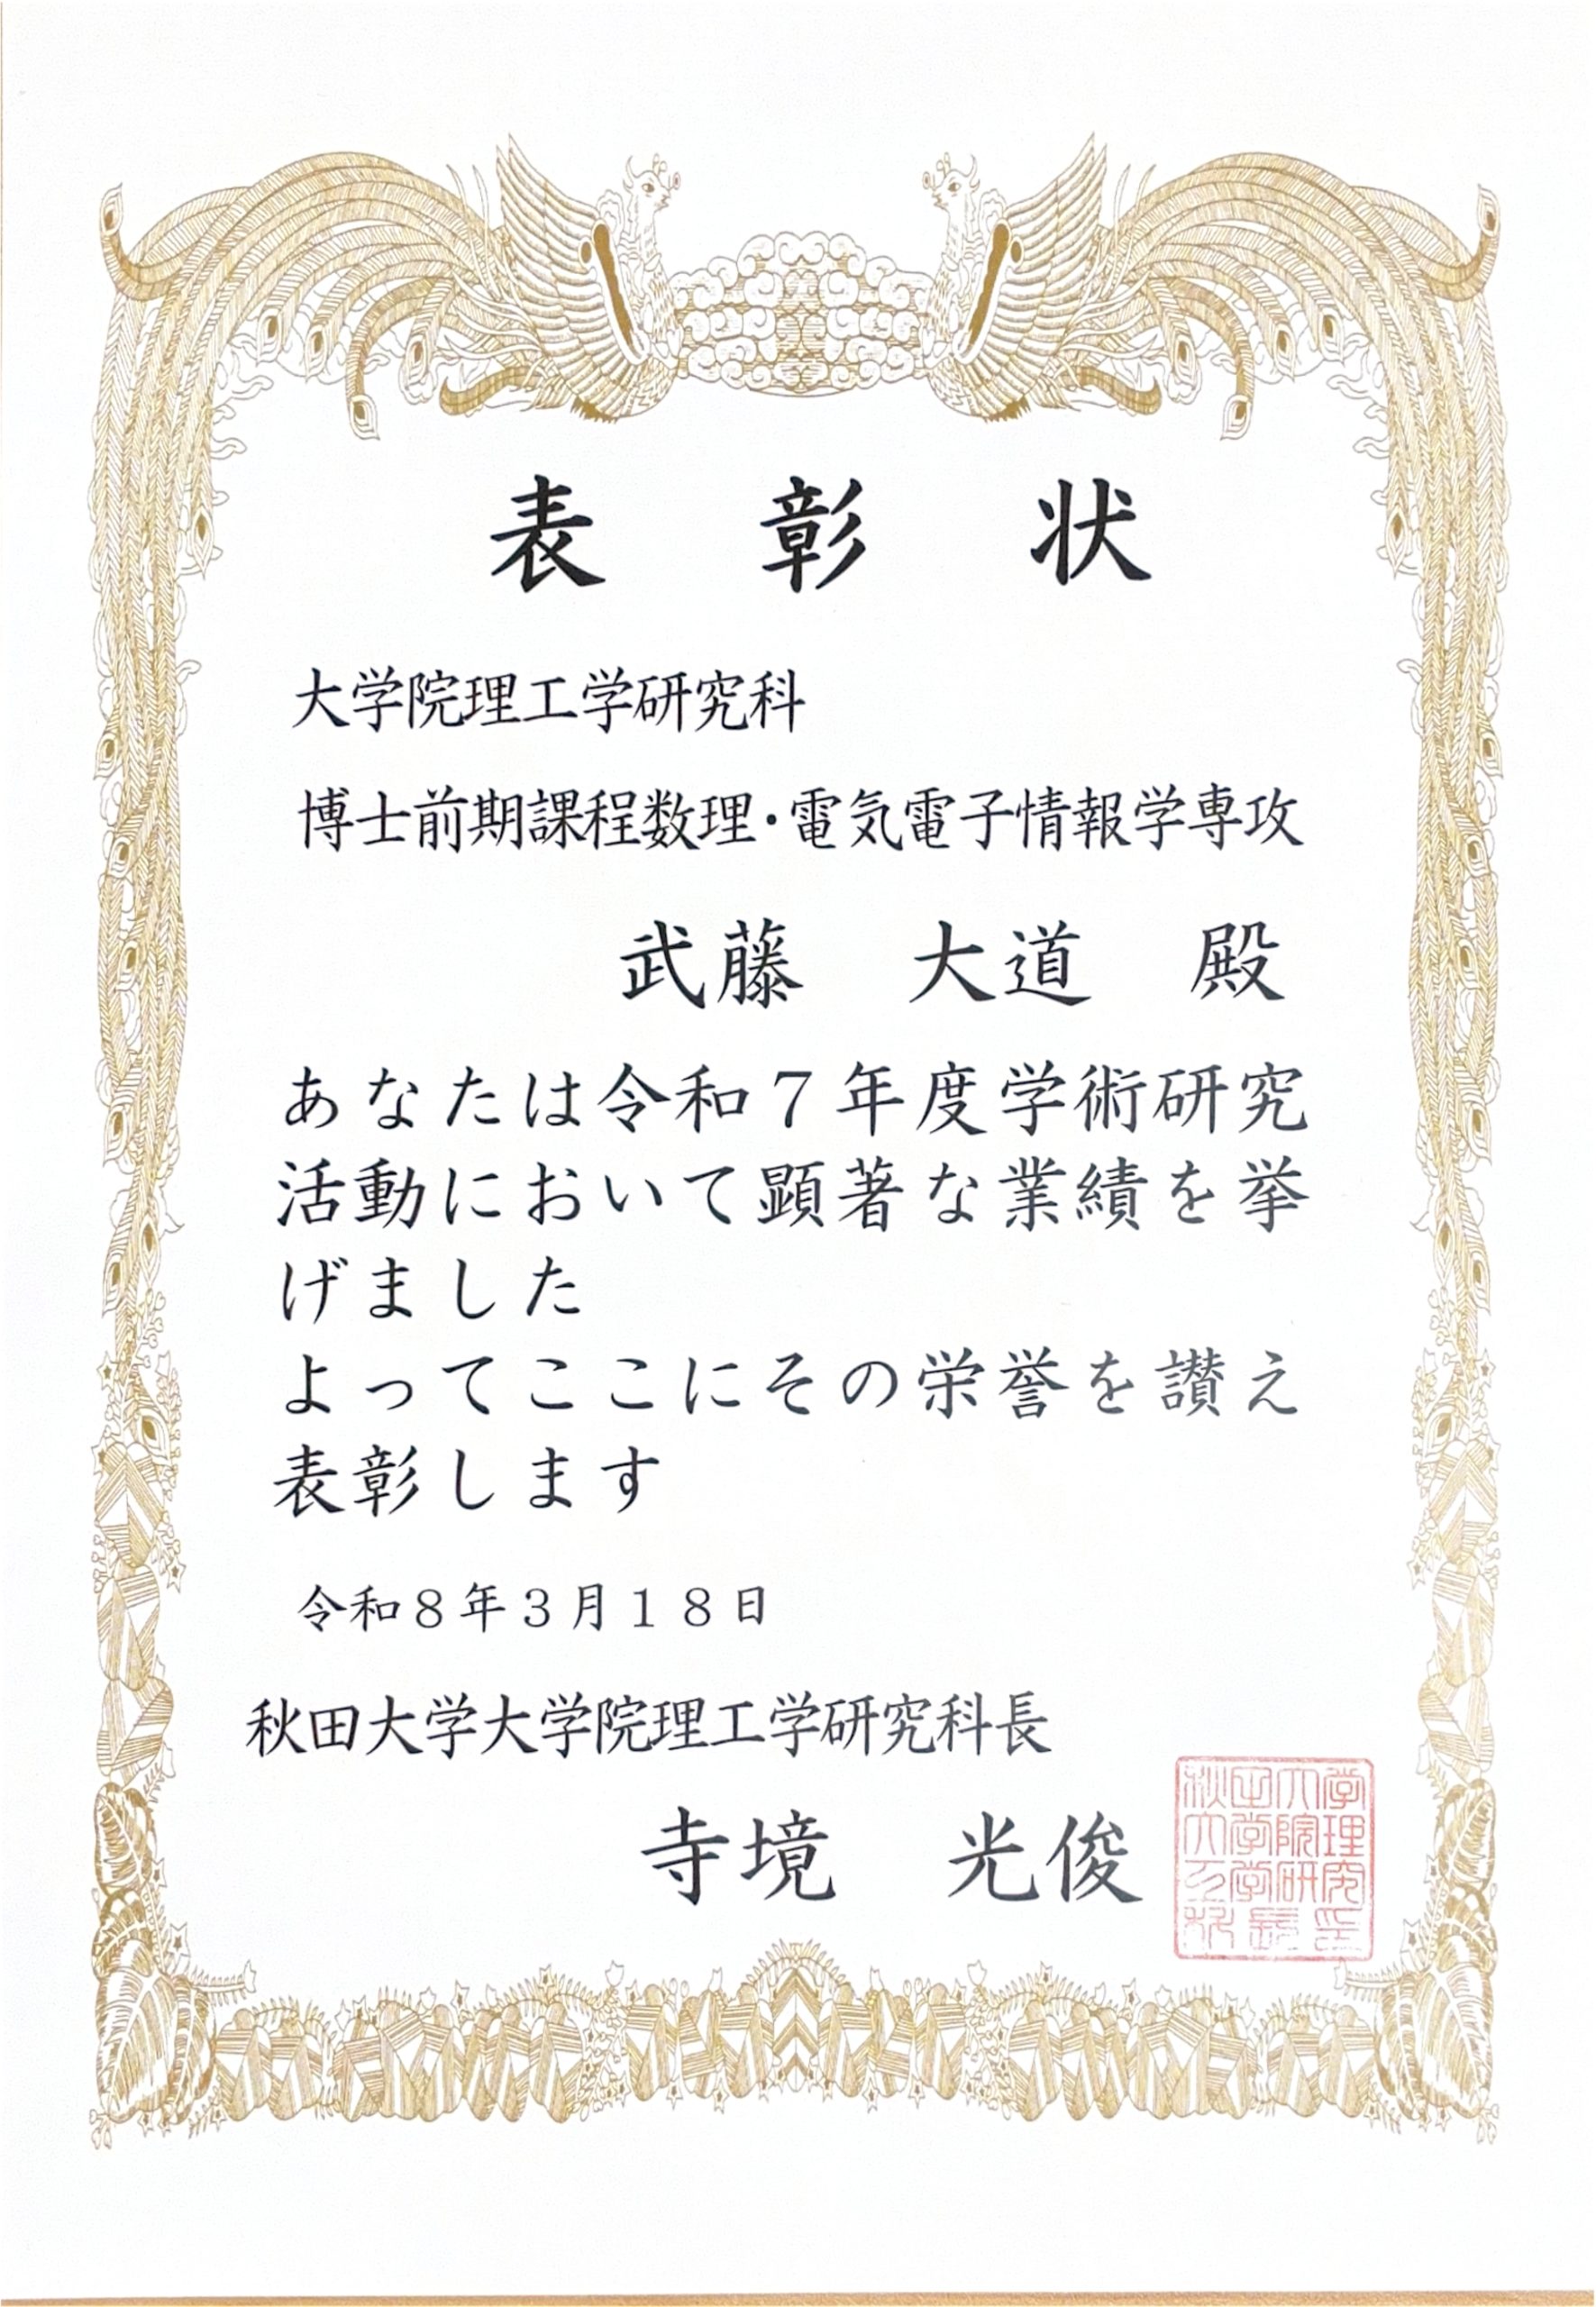 表彰状
大学院理工学研究科
博士前期課程数理・電気電子情報学専攻
武藤 大道 殿
あなたは令和７年度学術研究
活動において顕著な業績を挙
げました
よってここにその栄誉を讃え
表彰します
令和８年３月１８日
秋田大学大学院理工学研究科長
寺境 光俊
秋田大学
大学院理
工学研究
科長印